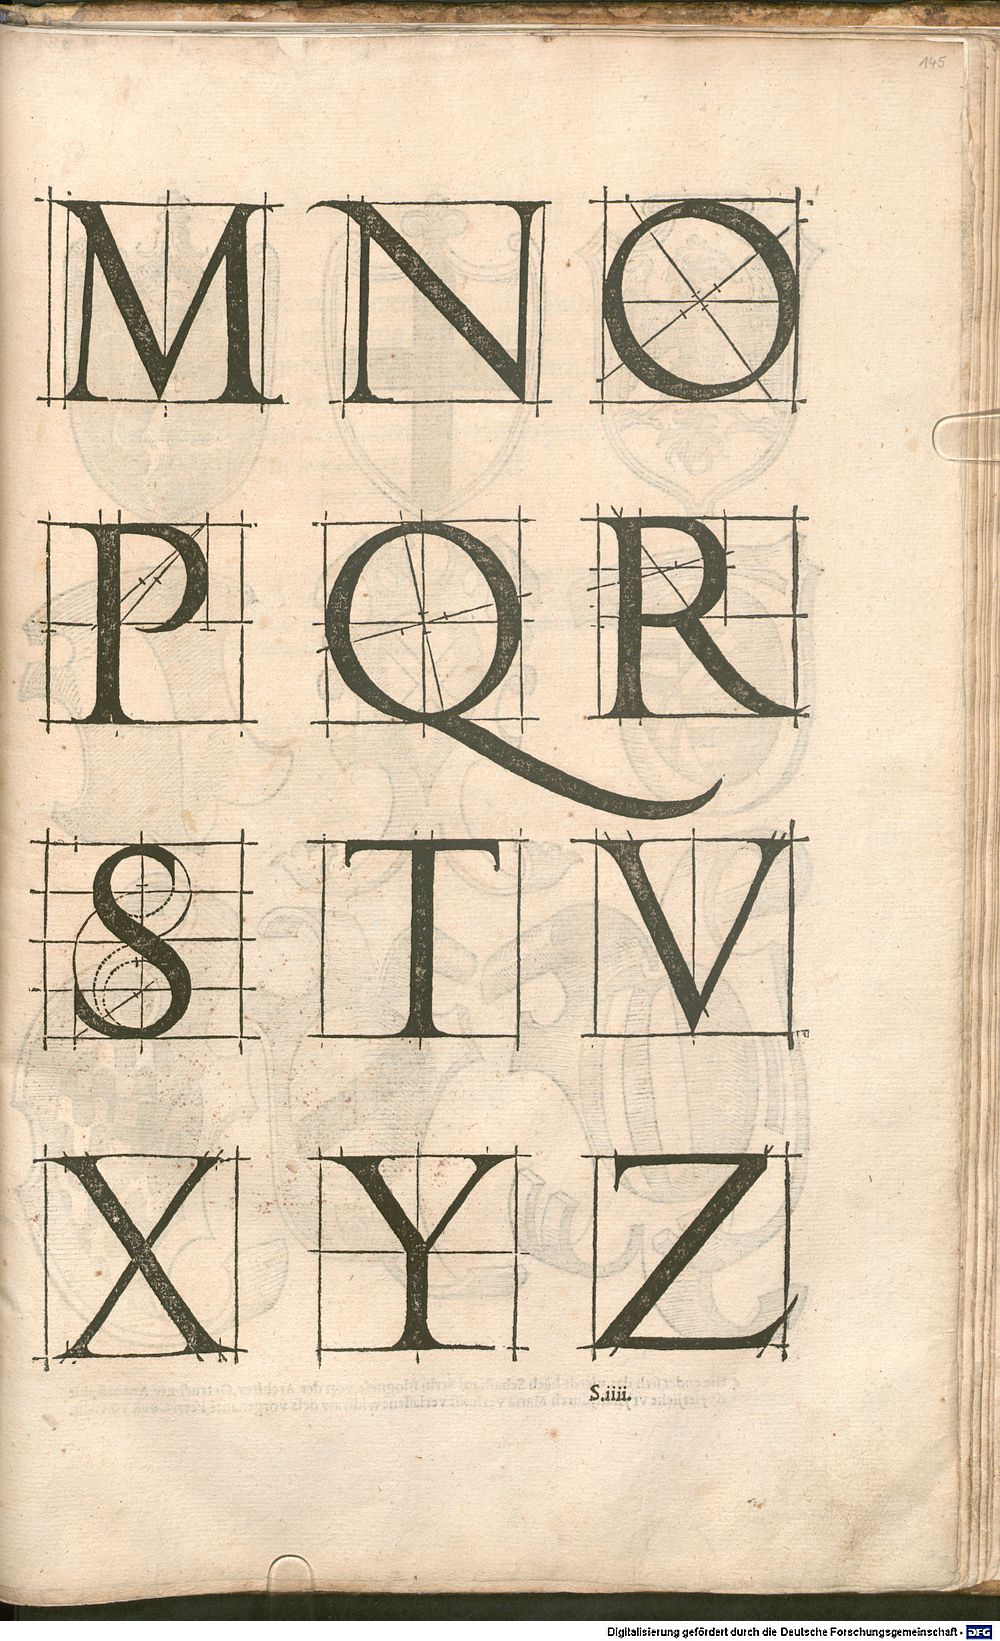 145
M N O
P Q R
S T V
X Y Z
S.iiii.
Digitalisierung gefördert durch die Deutsche Forschungsgemeinschaft - DFG